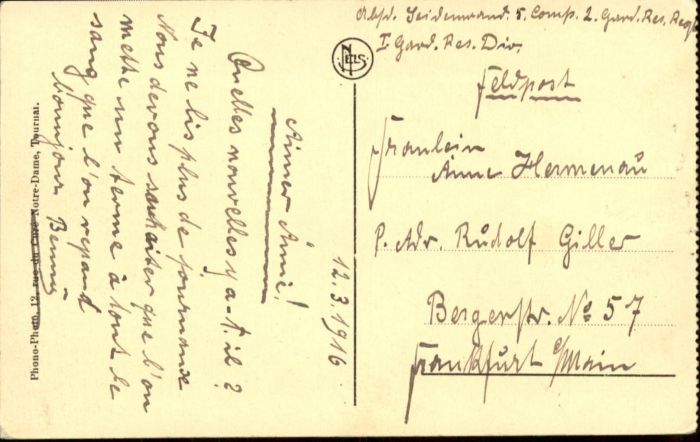 12.3.1916
Aimer Amie!
Quelles nouvelles y a-t-il?
Je ne lis plus de journaux
Nous devons souhaiter que l'on
mette un terme à tout le
sang que l'on repand
bonjour Benny
Phono-Photo, 12, rue du Curé Notre-Dame, Tournai.
NELS
Absd. Seidenwand. 5. Comp. 2. Gard. Res. Reg.
I. Gard. Res. Div.
Feldpost
Fräulein
Anne Hermenau
P. Adr. Rudolf Giller
Bergerstr. No 57
Frankfurt a/Main